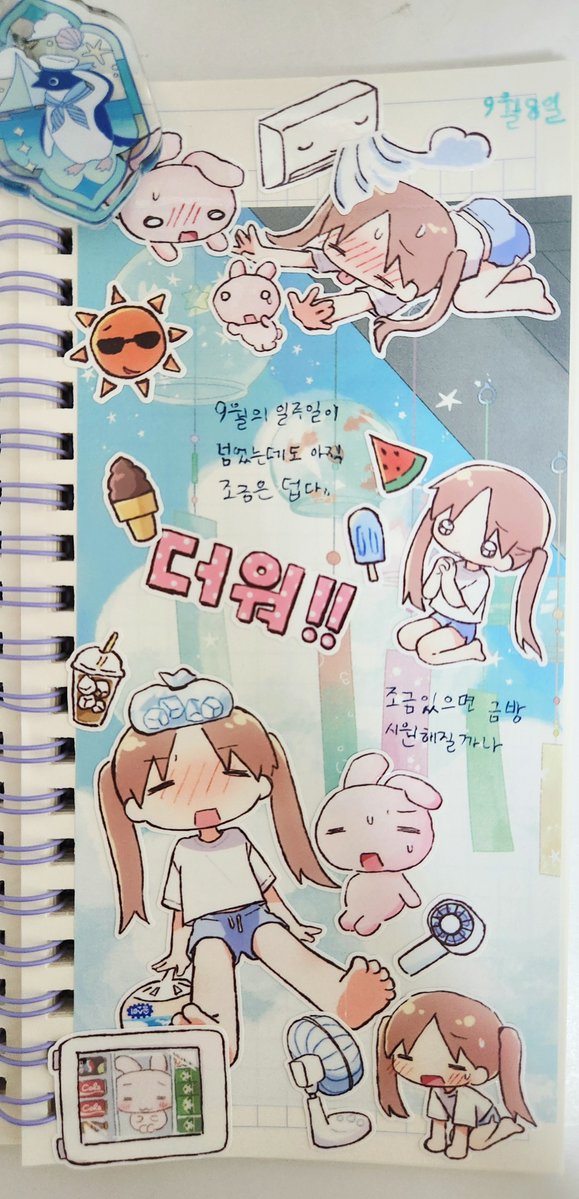 9월8일
9월의 일주일이
넘었는데도 아직
조금은 덥다..
더워!!
조금있으면 금방
시원해질까나
Cola
Cola